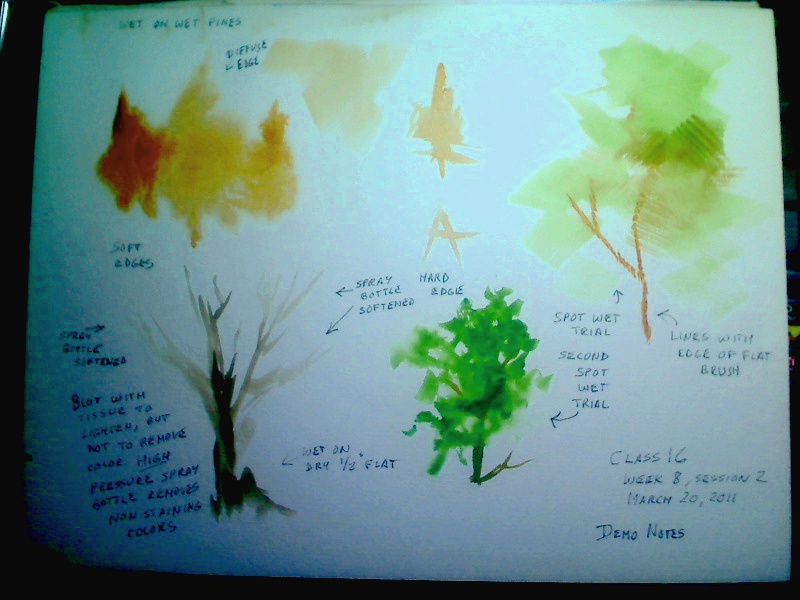 WET ON WET PINES
DIFFUSE
← EDGE
SOFT
EDGES
A
HARD
EDGE
← SPRAY
BOTTLE
SOFTENED
SPRAY →
BOTTLE
SOFTENED
SPOT WET
TRIAL
LINES WITH
EDGE OF FLAT
BRUSH
SECOND
SPOT
WET
TRIAL
BLOT WITH
TISSUE TO
LIGHTEN, BUT
NOT TO REMOVE
COLOR. HIGH
PRESSURE SPRAY
BOTTLE REMOVES
NON STAINING
COLORS
← WET ON
DRY 1/2" FLAT
CLASS 16
WEEK 8, SESSION 2
MARCH 20, 2011
DEMO NOTES